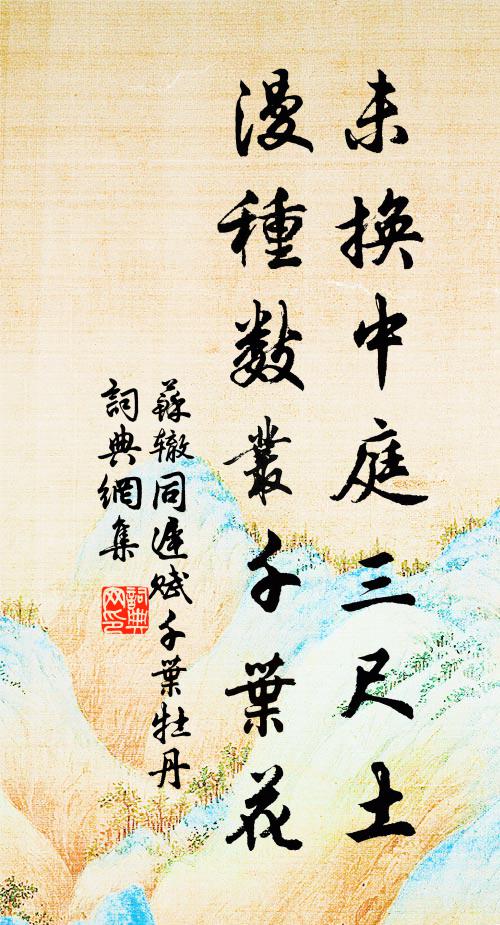 未換中庭三尺土
漫種數叢千葉花
蘇轍同遲賦千葉牡丹
詞典網集
詞典
网印